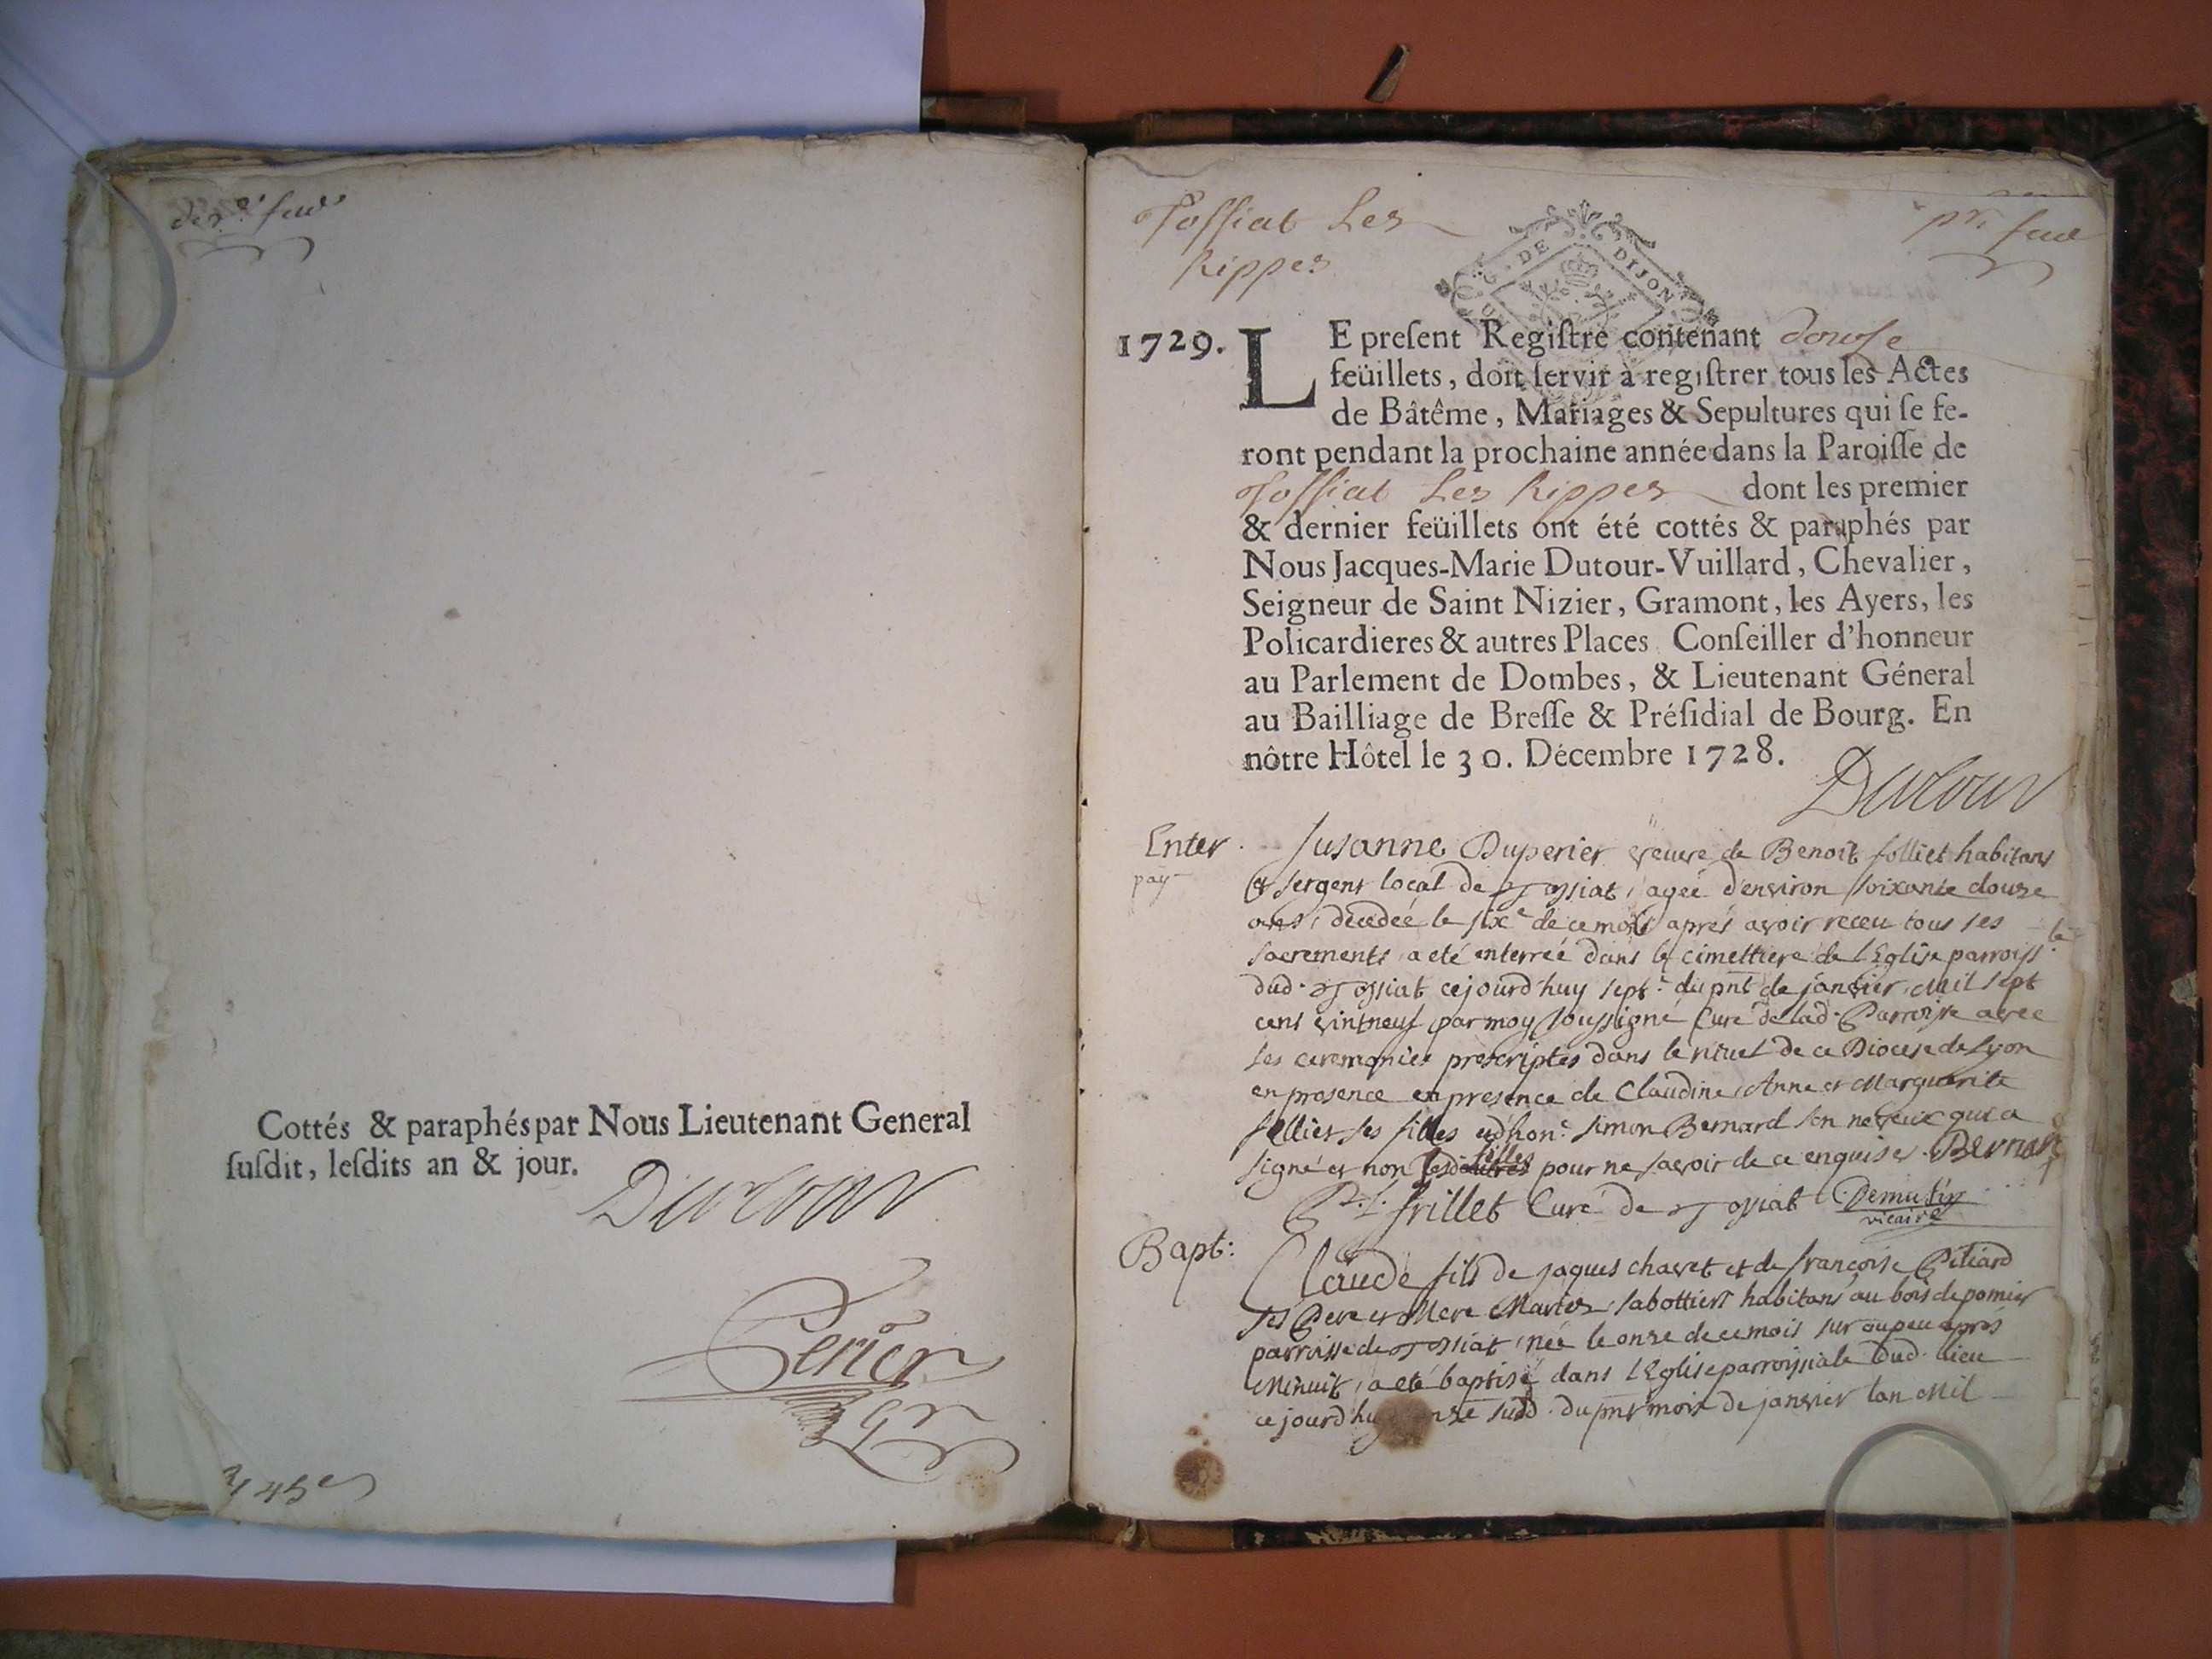 der.r feul
Cottés & paraphés par Nous Lieutenant General
ſuſdit, leſdits an & jour.
Dutour
Perier
Gr
Joſſiat Les
Rippes
pr. feul
G. DE DIJON
1729. LE preſent Regiſtre contenant douſe
feüillets, doit ſervir à regiſtrer tous les Actes
de Bâtême, Mariages & Sepultures qui ſe fe-
ront pendant la prochaine année dans la Paroiſſe de
Joſſiat Les Rippes dont les premier
& dernier feüillets ont été cottés & paraphés par
Nous Jacques-Marie Dutour-Vuillard, Chevalier,
Seigneur de Saint Nizier, Gramont, les Ayers, les
Policardieres & autres Places Conſeiller d'honneur
au Parlement de Dombes, & Lieutenant Géneral
au Bailliage de Breſſe & Préſidial de Bourg. En
nôtre Hôtel le 30. Décembre 1728.
Dutour
Enter. Susanne Duperier veuve de Benoit folliet habitans
pay et sergent local de Jossiat, agée d'environ soixante douze
ans, decedée le sixe de ce mois aprés avoir receu tous ses
sacrements a eté enterrée dans le cimettiere de l'Eglise parroiss.le
dud. Jossiat cejourd'huy sept.e du pnt de janvier Mil sept
cent vintneuf par moy soussigné Curé de lad. Parroisse avec
les ceremonies prescriptes dans le rituel de ce Diocese de Lyon
en presence en presence de Claudine, Anne et Marguerite
follier ses filles et d'hone. Simon Bernard son neveux qui a
signé et non lesd. filles pour ne savoir de ce enquises. Bernard
frillet Curé de Jossiat Demutin
vicaire
Bapt: Claude fils de jaques chavet et de francoise Pitiard
ses Pere et Mere Mariez sabottiers habitans au bois de pomier
parroisse de Jossiat, née le onze de ce mois sur ou peu aprés
Minuit, a eté baptisé dans l'Eglise parroissiale dud. lieu
cejourd'huy onze susd. du pnt mois de janvier l'an Mil